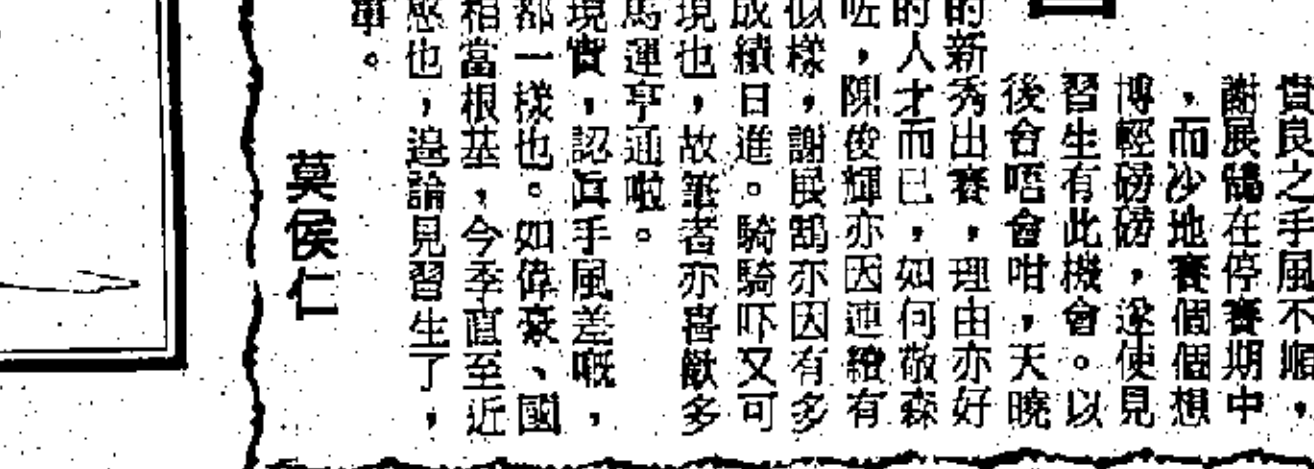 賢良之手風不順，
謝展鵠在停賽期中
，而沙地賽個個想
博輕磅磅，遂使見
習生有此機會。以
後會唔會咁，天曉
的新秀出賽，理由亦好
的人才而已，如何敬森
咗，陳俊輝亦因連續有
似樣，謝展鵠亦因有多
成績日進。騎騎吓又可
現也，故筆者亦喜歡多
馬運亨通啦。
現實，認真手風差嘅，
都一樣也。如偉豪、國
相當根基，今季直至近
惑也，遑論見習生了，
事。
莫侯仁